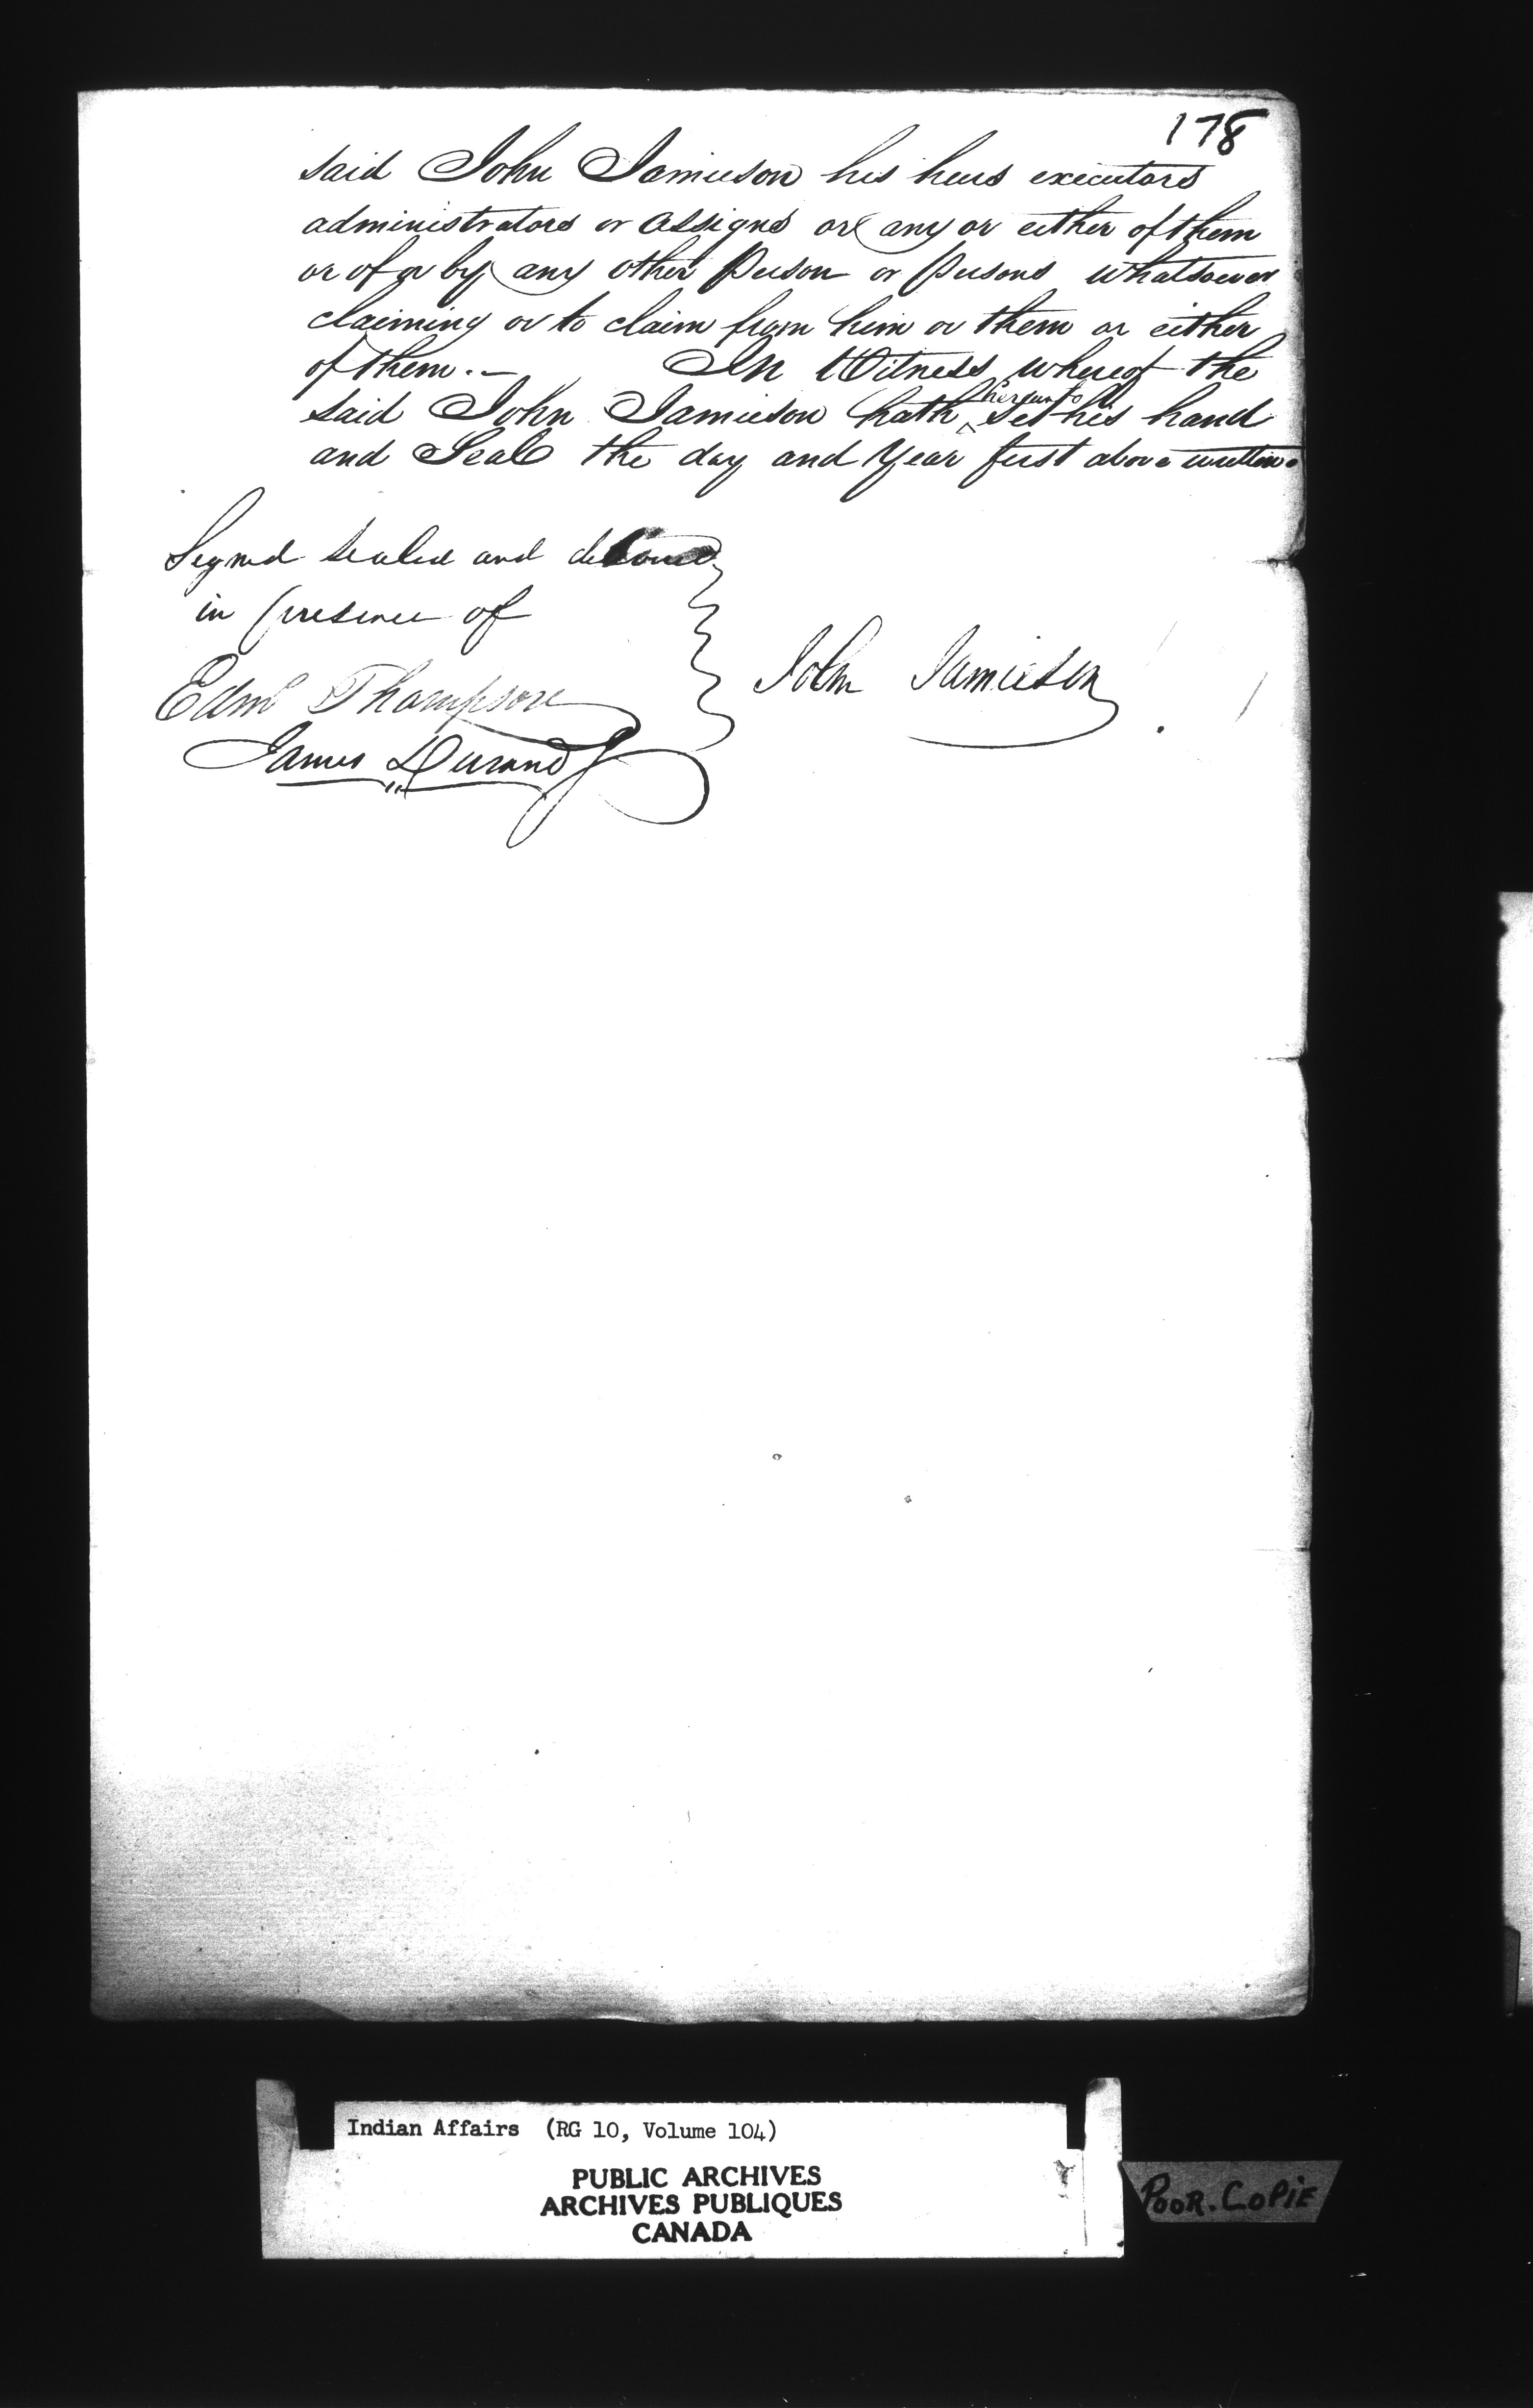 178
said John Jamieson his heirs executors
administrators or assigns or any or either of them
or of or by any other Person or Persons whatsoever
claiming or to claim from him or them or either
of them.— In Witness whereof the
said John Jamieson hath hereunto set his hand
and Seal the day and Year first above written.
Signed Sealed and
in presence of
Edmd Thompson
James Durand
John Jamieson
Indian Affairs (RG 10, Volume 104)
PUBLIC ARCHIVES
ARCHIVES PUBLIQUES
CANADA
POOR. COPIE